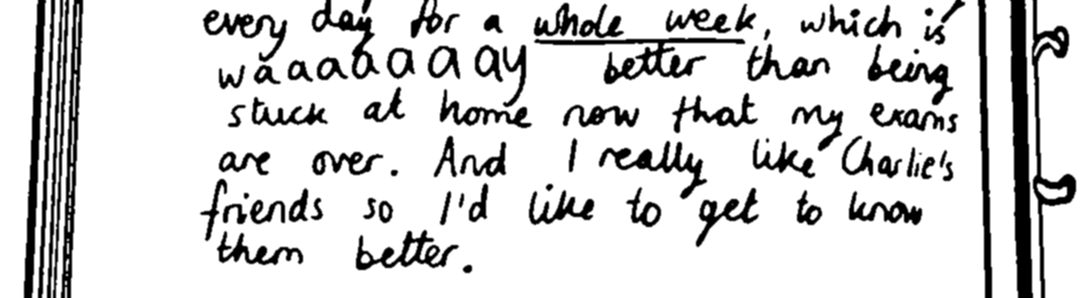 every day for a whole week, which is
waaaaaaay better than being
stuck at home now that my exams
are over. And I really like Charlie's
friends so I'd like to get to know
them better.